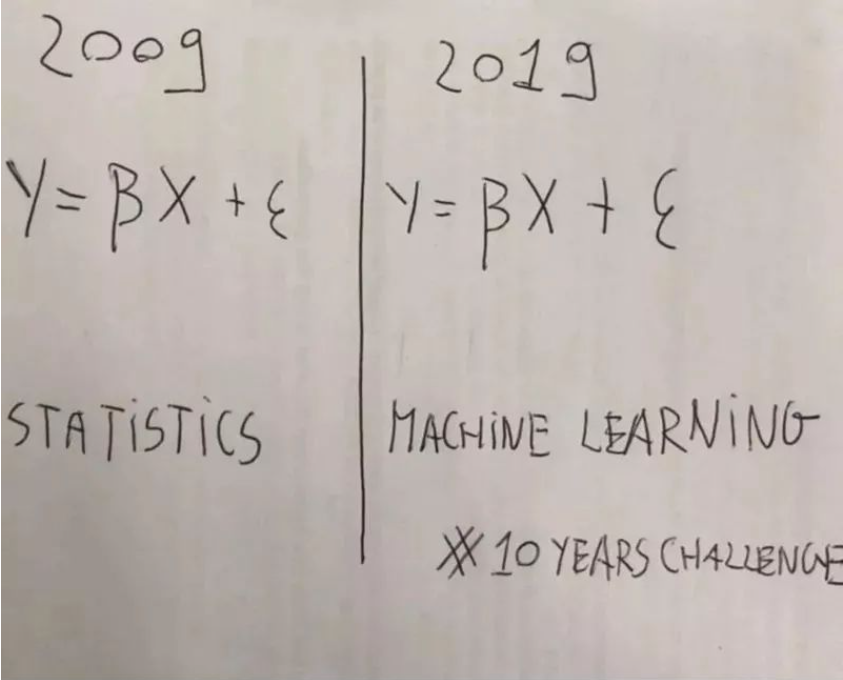 2009
Y = βX + ε
STATISTICS
2019
Y = βX + ε
MACHINE LEARNING
#10 YEARS CHALLENGE